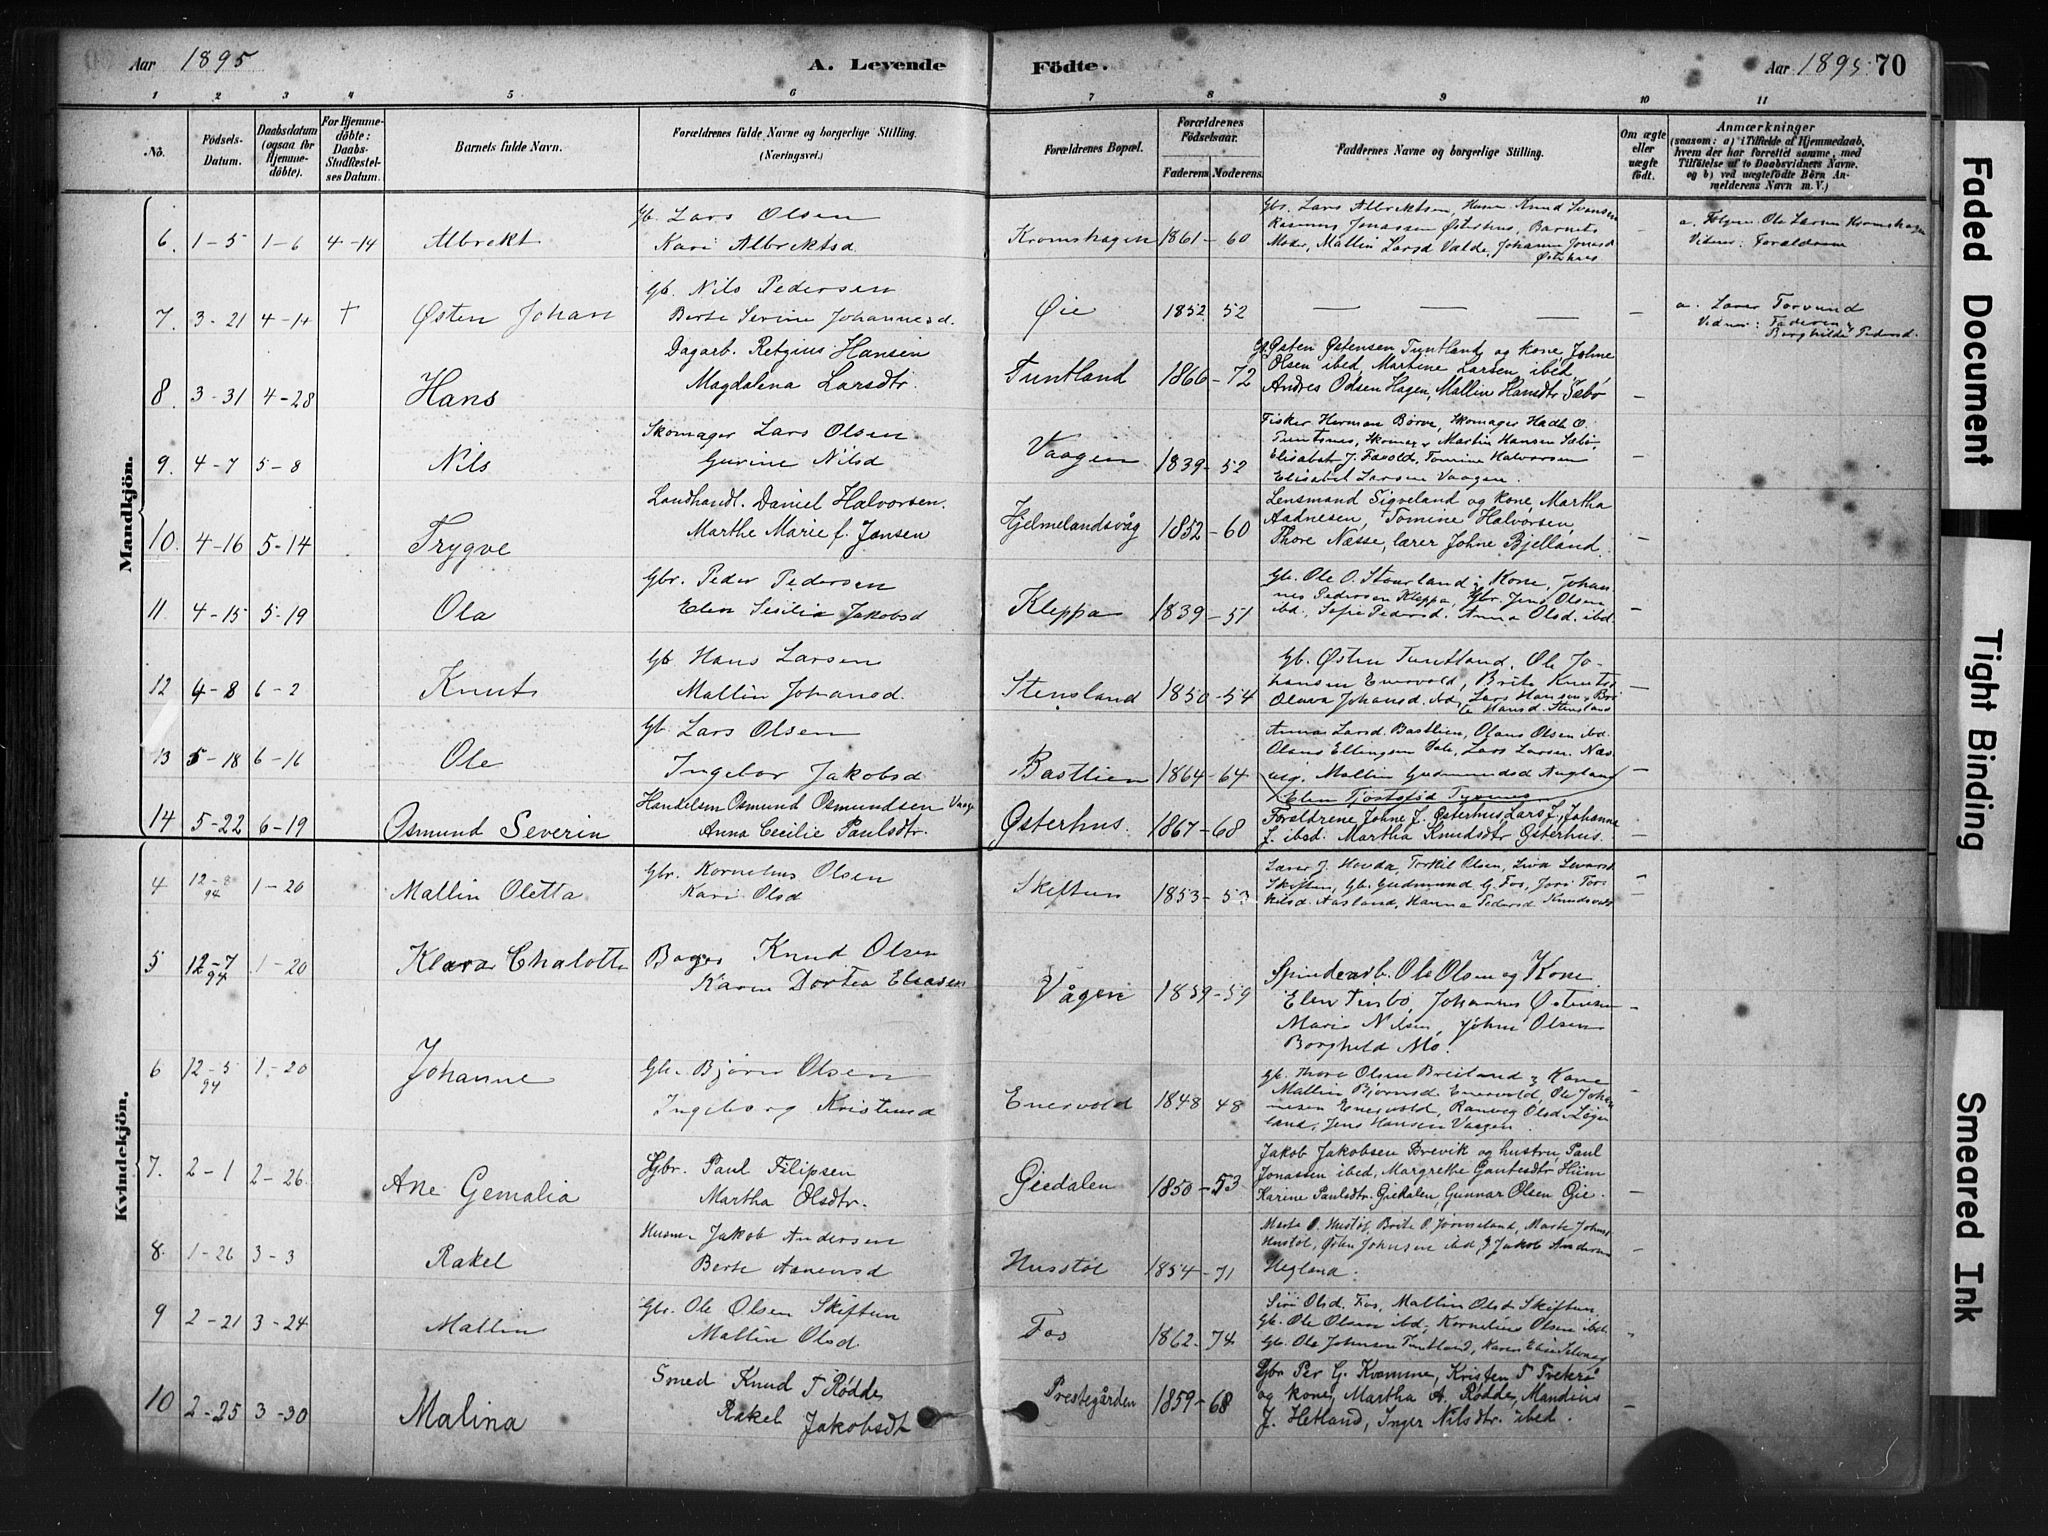 Aar 1895 A. Levende Födte. Aar 1895 70
1 2 3 4 5 6 7 8 9 10 11
No.
Födsels-Datum.
Daabsdatum (ogsaa for Hjemmedöbte).
For Hjemmedöbte: Daabs-Stadfæstelses Datum.
Barnets fulde Navn.
Forældrenes fulde Navne og borgerlige Stilling. (Næringsvei.)
Forældrenes Bopæl.
Forældrenes Födselsaar.
Faderens. Moderens.
Faddernes Navne og borgerlige Stilling.
Om ægte eller uægte födt.
Anmærkninger
(saasom: a) i Tilfælde af Hjemmedaab, hvem der har forrettet samme, med Tilföielse af to Daabsvidners Navne. og b) ved uægtefödte Börn Anmelderens Navn m. V.)
Mandkjön.
6. 1-5 1-6 4-14 Albrekt
Gb. Lars Olsen
Kari Albrektsd
Kromshagen 1861-60
Gbr. Lars Albrektsen, Hans Knud Svensen
Rasmus Jonassen Østerhus, Barnets
Moder, Mallin Larsd Valde, Johanne Jonasd
Østerhus
a. Ole Larsen Kromshagen
Vidner: Forældrene
7. 3-21 4-14 † Østen Johan
Gb. Nils Pedersen
Berte Serine Johannesd.
Øie 1852 52
a. Lærer Torvund
Vidner: Faderen &
Borghilde Pedersd.
8. 3-31 4-28 Hans
Dagarb. Retgius Hansen
Magdalena Larsdtr.
Tuntland 1866-72
Gb. Østen Østensen Tuntland og kone, Johne
Olsen ibed, Martine Larsen ibed,
Andres Odsen Hagen, Mallin Hansdtr Sæbö
9. 4-7 5-8 Nils
Skomager Lars Olsen
Gurine Nilsd
Vaagen 1839-52
Fisker Herman Börve, Skomager Hadle O.
Tuntsnes, Martin Hansen Sæbö,
Elisabet J. Tomine Halvorsen
Elisabet Larsen Vaagen.
10. 4-16 5-14 Trygve
Landhandl. Daniel Halvorsen.
Marthe Marie f. Jansen
Hjelmelandsvåg 1852-60
Lensmand Sigveland og kone, Martha
Aadnesen, Tomine Halvorsen,
Thore Næsse, lærer Johne Bjelland.
11 4-15 5-19 Ola
Gbr. Peder Pedersen
Elen Sesilia Jakobsd
Kleppa 1839-51
Gb. Ole O. Stourland & Kone, Johan
nes Pedersen Kleppa, Gbr. Jens Olsen
ibd, Sofie Pedersd. Anna Olsd. ibd
12 4-8 6-2 Knut
Gb Hans Larsen
Mallin Johansd.
Stensland 1850-54
Gb. Østen Tuntland, Ole Jo-
hansen Enervold, Brite Knuts
Olava Johansd. ibd, Lars Hansen & Bri
te Hansd. Stensland
13 5-18 6-16 Ole
Gb. Lars Olsen
Ingebor Jakobsd
Bastlien 1864-64
Anna Larsd. Bastlien, Olaus Olsen ibd.
Olaus Ellingsen Sale, Lars Larsen Næs
Mallin Gudmundsd Augland
Elen Tjostofsd
14 5-22 6-19 Osmund Severin
Handelsm Osmund Osmundsen Vaage
Anna Cecilie Paulsdtr.
Østerhus. 1867-68
Forældrene Johne J. Østerhus, Lars J., Johanna
J. ibed. Martha Knudsdtr Østerhus.
Kvindekjön.
4 12-8 94 1-20 Mallin Oletta
Gbr. Kornelius Olsen
Kari Olsd
Skiftun 1853-53
Lærer J. Hovda, Torkil Olsen, Liva
Skiftun, Gb. Gudmund G. Fos, Jori Tor
kilsd. Aasland, Hanna Pedersd Knudsvik
5 12-7 94 1-20 Klara Chalotte
Bager Knud Olsen
Karen Dortea Eliasen
Vågen 1859-59
Spinderib. Ole Olsen og Kone
Elen Tuesbö, Johannes Østensen
Marie Nilsen, Johne Olsen
Borghild Mo.
6 12-5 94 1-20 Johanne
Gb. Björn Olsen
Ingeborg Kristensd
Enervold 1848 48
Gb. Thore Olsen Breiland & Kone
Mallin Bjornsd Enervold, Ole Johan
nesen Enervold, Ranveig Olsd Löge
land, Jens Hansen Vaagen.
7. 2-1 2-26 Ane Gemalia
Gbr. Paul Filipsen
Martha Olsdtr.
Giedalen 1850-53
Jakob Jakobsen Brevik og hustru, Paul
Jonassen ibed, Margrethe Gautesdtr Hum
Karine Paulsdtr. Giedalen, Gunnar Olsen Øie.
8. 1-26 3-3 Rakel
Husm. Jakob Andersen
Berte Aanensd
Husstöl 1854-71
Marta O. Hustöl, Brite O. Jömeland, Marte Johns
Hustöl, John Johnsen ibd, & Jakob Andersen
Hegland.
9 2-21 3-24 Mallin
Gbr. Ole Olsen Skiftun
Mallin Olsd
Fos 1862-74
Siri Olsd. Fos, Mallin Olsd Skiftun,
Gb. Ole Olsen ibd, Kornelius Olsen ibd.
Gb. Ole Johnsen Tuntland, Karen Elise
10 2-25 3-30 Malina
Smed Knud T Rødde
Rakel Jakobsdt
Prestegården 1859-68
Gbr Per G. Kvamme, Kristen T Tveterå
og kone, Martha A. Rödde, Mandius
J. Hetland, Inger Nilsdtr. ibed.
Faded Document
Tight Binding
Smeared Ink